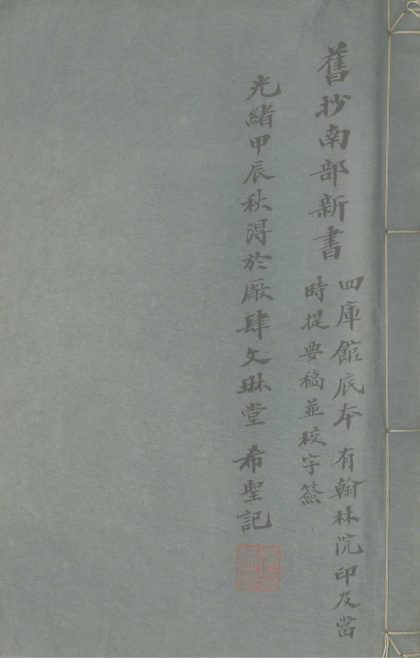 舊抄南部新書
四庫館底本 有翰林院印及當
時提要稿並校字籤
光緒甲辰秋淂於廠肆文琳堂 希聖記